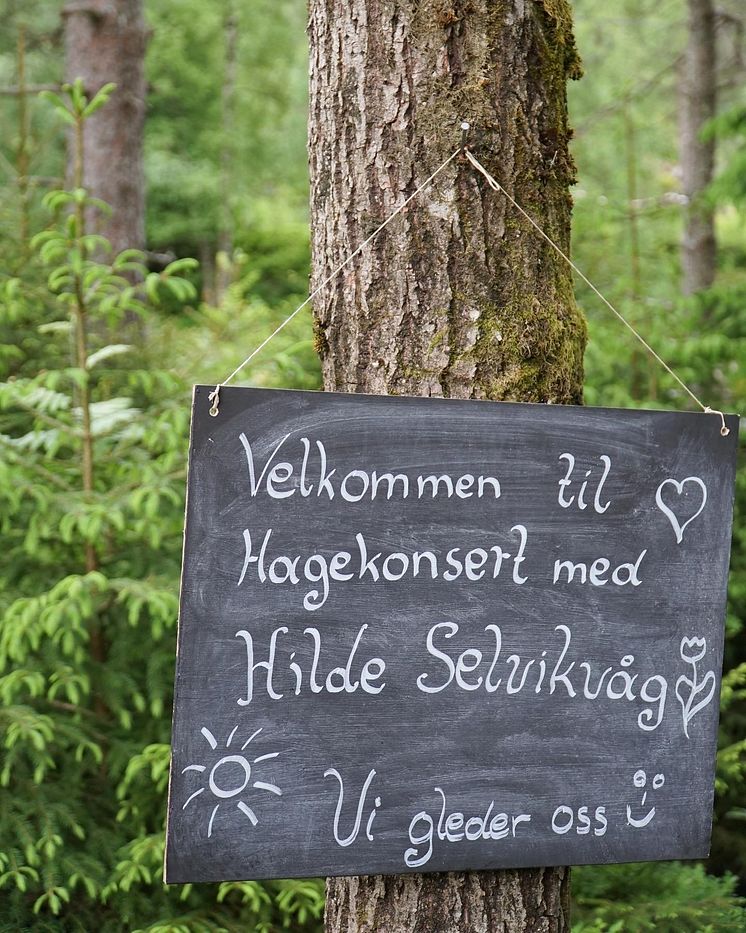 Velkommen til
Hagekonsert med
Hilde Selvikvåg
Vi gleder oss